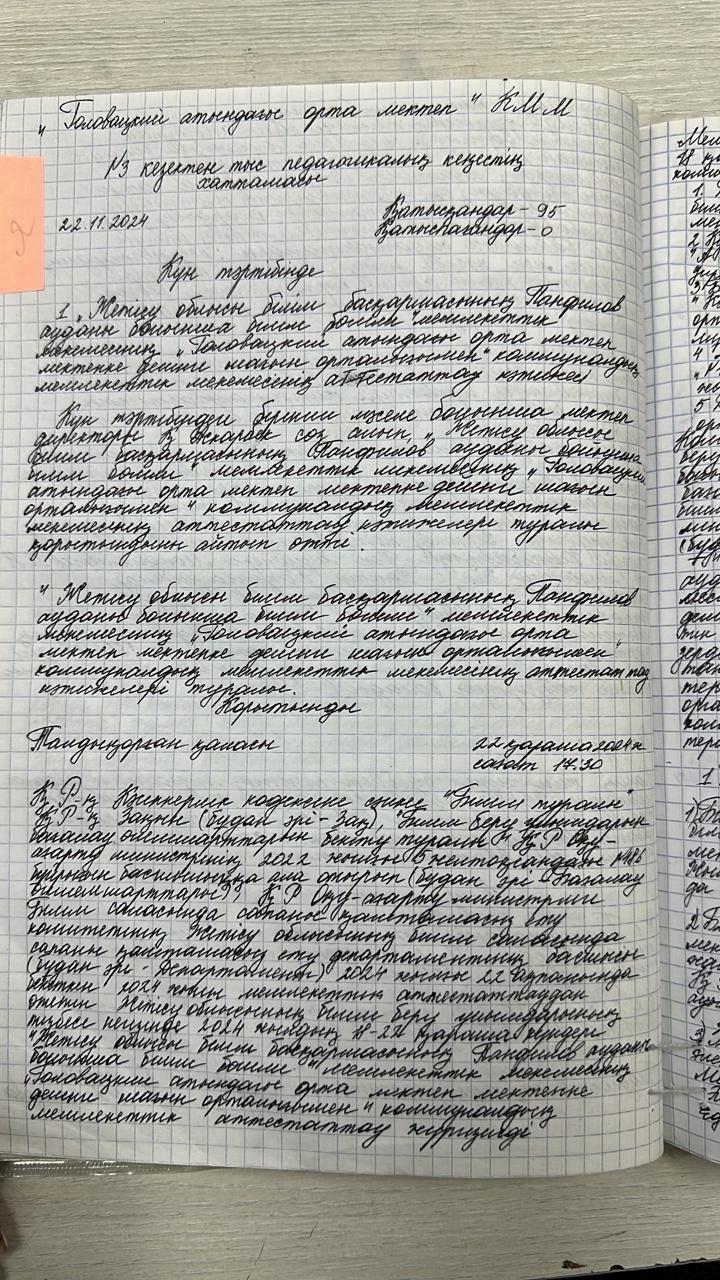 „Головацкий атындағы орта мектеп" КММ
№3 кезектен тыс педагогикалық кеңестің
хаттамасы
22.11.2024
Қатысқандар - 95
Қатыспағандар - 0
Күн тәртібінде
1 „Жетісу облысы білім басқармасының Панфилов
ауданы бойынша білім бөлімі" мемлекеттік
мекемесінің „Головацкий атындағы орта мектеп
мектепке дейінгі шағын орталығымен" коммуналдық
мемлекеттік мекемесінің аттестаттау нәтижесі
Күн тәртібіндегі бірінші мәселе бойынша мектеп
директоры Қ Асқарбек сөз алып, „Жетісу облысы
білім басқармасының Панфилов ауданы бойынша
білім бөлімі" мемлекеттік мекемесінің „Головацкий
атындағы орта мектеп мектепке дейінгі шағын
орталығымен" коммуналдық мемлекеттік
мекемесінің аттестаттау нәтижелері туралы
қорытындыны айтып өтті.
„Жетісу облысы білім басқармасының Панфилов
ауданы бойынша білім бөлімі" мемлекеттік
мекемесінің „Головацкий атындағы орта
мектеп мектепке дейінгі шағын орталығымен"
коммуналдық мемлекеттік мекемесінің аттестаттау
нәтижелері туралы.
Қорытынды
Талдықорған қаласы
22 қараша 2024 ж
сағат 17.30
ҚР-ң Кәсіпкерлік кодексіне сәйкес "Білім туралы"
ҚР-ң Заңына (будан әрі - Заң), "Білім беру ұйымдарын
бағалау өлшемшарттарын бекіту туралы" ҚР Оқу-
ағарту министрінің 2022 жылғы 5 желтоқсандағы №486
бұйрығын басшылыққа ала отырып (будан әрі Бағалау
өлшемшарттары), ҚР Оқу-ағарту министрлігі
Білім саласында сапаны қамтамасыз ету
комитетінің Жетісу облысының білім саласында
сапаны қамтамасыз ету департаментінің басшысы
(будан әрі - Департамент) 2024 жылғы 22 ақпанында
бекіткен 2024 жылы мемлекеттік аттестаттаудан
өтетін Жетісу облысының білім беру ұйымдарының
тізбесі негізінде 2024 жылдың 18-22 қараша күндері
"Жетісу облысы білім басқармасының Панфилов ауданы
бойынша білім бөлімі" мемлекеттік мекемесінің
„Головацкий атындағы орта мектеп мектепке
дейінгі шағын орталығымен" коммуналдық
мемлекеттік аттестаттау жүргізілді